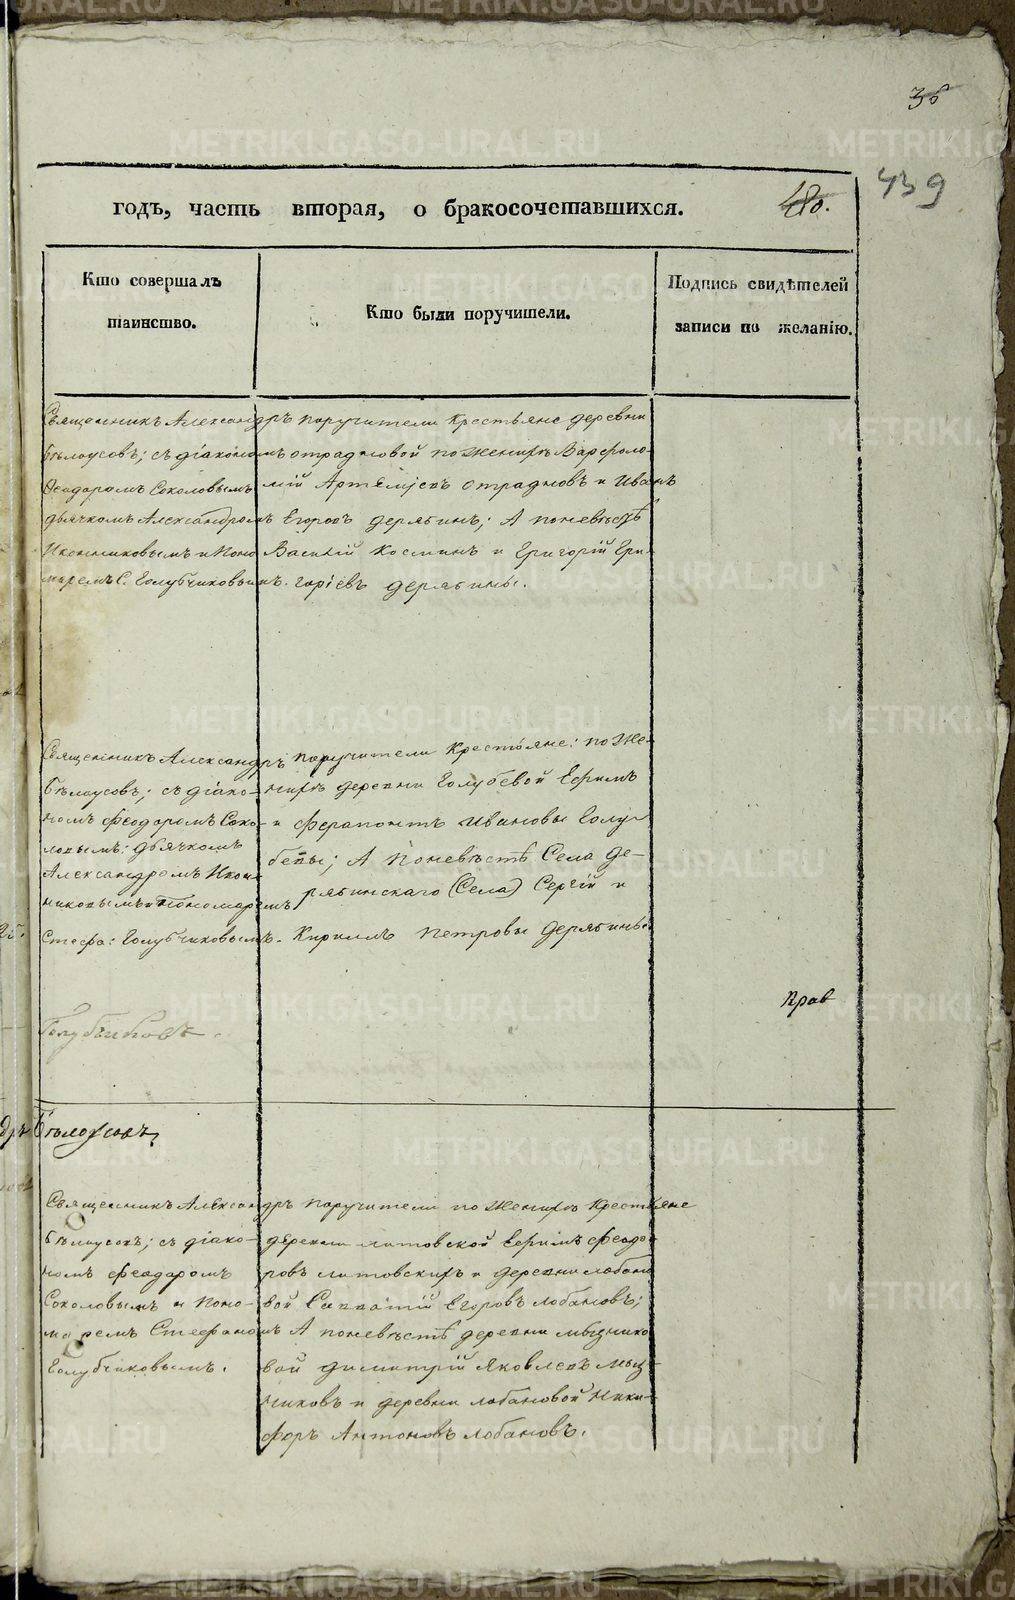 36
439
годъ, часть вторая, о бракосочетавшихся.
480.
Кто совершалъ
таинство.
Кто были поручители.
Подпись свидѣтелей
записи по желанію.
Священникъ Александръ
Бѣлоусовъ; съ діакономъ
Феодоромъ Соколовымъ
дьячкомъ Александромъ
Иконниковымъ и Поно
маремъ С. Голубчиковымъ.
поручители Крестьяне деревни
отрадновой по женихѣ Варфоло-
мій Артемьевъ отрадновъ и Иванъ
Егоровъ дерябинъ; А поневѣстѣ
Василій Костинъ и Григорій Гри-
горіевъ дерябины.
Священникъ Александръ
Бѣлоусовъ; съ діако-
номъ феодоромъ Соко-
ловымъ: дьячкомъ
Александромъ Икон
никовымъ и Пономаремъ
Стефа: Голубчиковымъ.
поручители Крестьяне: по Же-
нихѣ деревни Голубевой Ефимъ
и Ферапонтъ Ивановы Голу-
бевы; А поневѣстѣ Села де-
рябинскаго (Села) Сергій и
Кириллъ Петровы Дерябины.
Прав
Голубчиковъ.
Бѣлоусовъ
Священникъ Александръ
Бѣлоусовъ; съ діако-
номъ феодоромъ
Соколовымъ и Поно-
маремъ Стефаномъ
Голубчиковымъ.
поручители по Женихѣ Крестьяне
деревни литовской Ефимъ феодо-
ровъ литовскихъ и деревни лобано
вой Савватій Егоровъ лобановъ;
А поневѣстѣ деревни мызнико
вой димитрій Яковлевъ мыз-
никовъ и деревни лобановой Ники-
форъ Антоновъ лобановъ.
METRIKI.GASO-URAL.RU